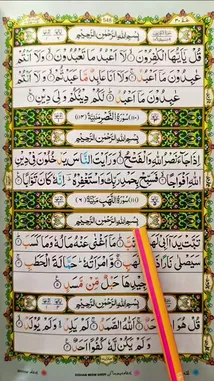 بِسْمِ اللهِ الرَّحْمٰنِ الرَّحِيْمِ
قُلْ يٰٓاَيُّهَا الْكٰفِرُوْنَ ۙ لَآ اَعْبُدُ مَا تَعْبُدُوْنَ ۙ وَلَآ اَنْتُمْ
عٰبِدُوْنَ مَآ اَعْبُدُ ۚ وَلَآ اَنَا عَابِدٌ مَّا عَبَدْتُّمْ ۙ وَلَآ اَنْتُمْ
عٰبِدُوْنَ مَآ اَعْبُدُ ؕ لَكُمْ دِيْنُكُمْ وَلِيَ دِيْنِ
(١١٠) سُوْرَةُ النَّصْرِ مَدَنِيَّةٌ (١١٤)
بِسْمِ اللهِ الرَّحْمٰنِ الرَّحِيْمِ
اِذَا جَآءَ نَصْرُ اللهِ وَالْفَتْحُ ۙ وَرَاَيْتَ النَّاسَ يَدْخُلُوْنَ فِيْ دِيْنِ
اللهِ اَفْوَاجًا ۙ فَسَبِّحْ بِحَمْدِ رَبِّكَ وَاسْتَغْفِرْهُ ؕ اِنَّهٗ كَانَ تَوَّابًا
(١١١) سُوْرَةُ اللَّهَبِ مَكِّيَّةٌ (٦)
بِسْمِ اللهِ الرَّحْمٰنِ الرَّحِيْمِ
تَبَّتْ يَدَآ اَبِيْ لَهَبٍ وَّتَبَّ ؕ مَآ اَغْنٰى عَنْهُ مَالُهٗ وَمَا كَسَبَ
سَيَصْلٰى نَارًا ذَاتَ لَهَبٍ ۙ وَّامْرَاَتُهٗ ؕ حَمَّالَةَ الْحَطَبِ
جِيْدِهَا حَبْلٌ مِّنْ مَّسَدٍ
بِسْمِ اللهِ الرَّحْمٰنِ الرَّحِيْمِ
قُلْ هُوَ اللهُ اَحَدٌ ۚ اَللهُ الصَّمَدُ ۚ لَمْ يَلِدْ ۙ وَلَمْ يُوْلَدْ
وَلَمْ يَكُنْ لَّهٗ كُفُوًا اَحَدٌ